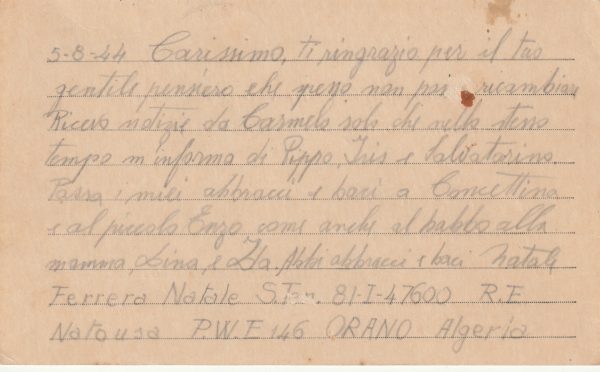 5-8-44 Carissimo, ti ringrazio per il tuo
gentile pensiero che posso non poss ricambiare
Ricevo notizie da Carmelo solo che nello stesso
tempo m'informa di Pippo, Iris e Salvatorino.
Passa i miei abbracci e baci a Concettina
e al piccolo Enzo come anche al babbo alla
mamma, Lina, e Ida. Abbi abbracci e baci Natale
Ferrera Natale S.Ten. 81-I-47600 R.E
Natousa P.W.E 146 ORANO Algeria